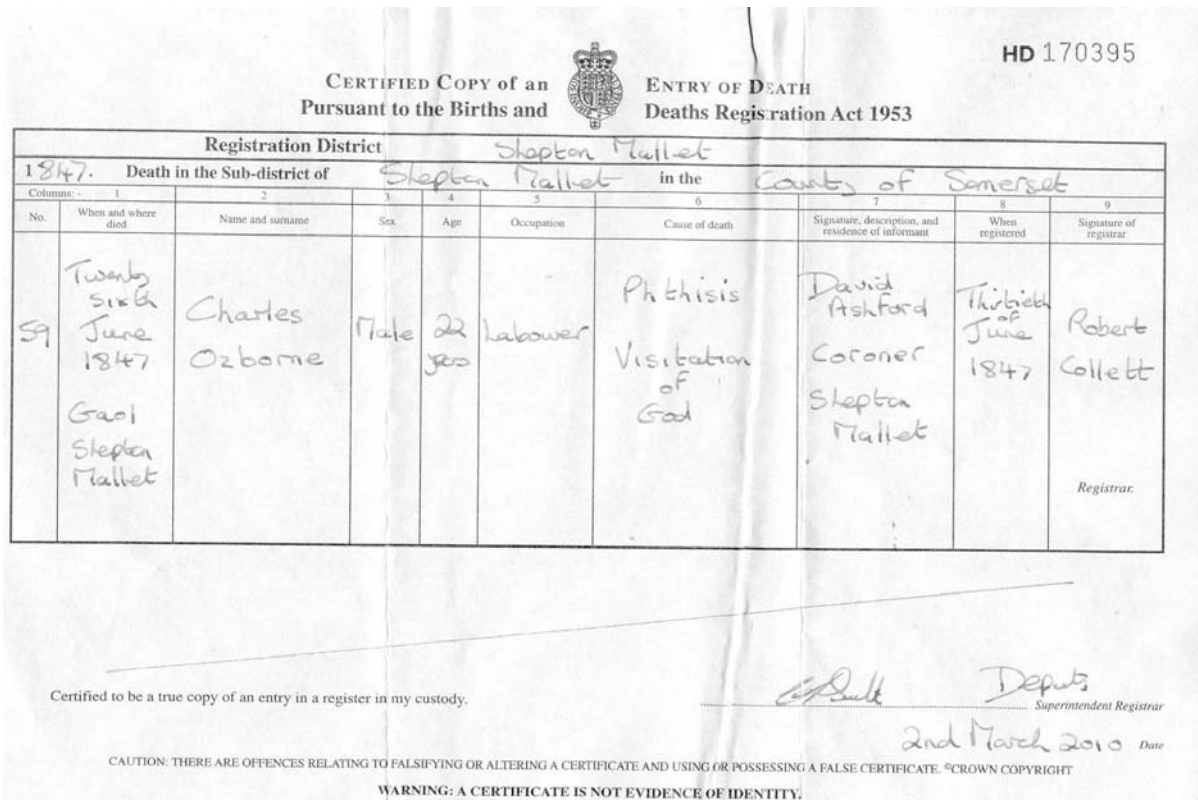 HD 170395
CERTIFIED COPY of an ENTRY OF DEATH
Pursuant to the Births and Deaths Registration Act 1953
Registration District Shepton Mallet
1847. Death in the Sub-district of Shepton Mallet in the County of Somerset
Columns: - 1 2 3 4 5 6 7 8 9
No. When and where died Name and surname Sex Age Occupation Cause of death Signature, description, and residence of informant When registered Signature of registrar
59
Twenty
Sixth
June
1847
Gaol
Shepton
Mallet
Charles
Ozborne
Male
22
years
Labourer
Phthisis
Visitation
of
God
David
Ashford
Coroner
Shepton
Mallet
Thirtieth
of
June
1847
Robert
Collett
Registrar.
Certified to be a true copy of an entry in a register in my custody.
Deputy
Superintendent Registrar
2nd March 2010 Date
CAUTION: THERE ARE OFFENCES RELATING TO FALSIFYING OR ALTERING A CERTIFICATE AND USING OR POSSESSING A FALSE CERTIFICATE. ©CROWN COPYRIGHT
WARNING: A CERTIFICATE IS NOT EVIDENCE OF IDENTITY.